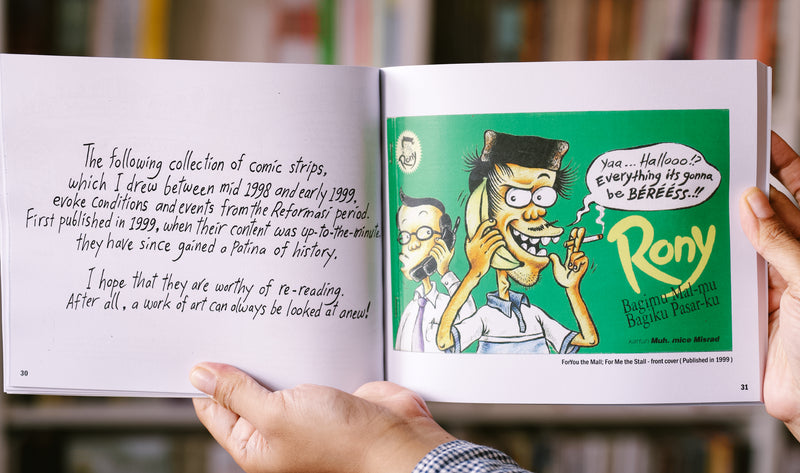 The following collection of comic strips,
which I drew between mid 1998 and early 1999.
evoke conditions and events from the Reformasi period.
First published in 1999, when their content was up-to-the-minute
they have since gained a Patina of history.
I hope that they are worthy of re-reading.
After all, a work of art can always be looked at anew!
30
Rony
Yaa... Hallooo!?
Everything its gonna
be BÉRÉÉSS..!!
Rony
Bagimu Mal-mu
Bagiku Pasar-ku
kartun Muh. mice Misrad
ForYou the Mall; For Me the Stall - front cover ( Published in 1999 )
31